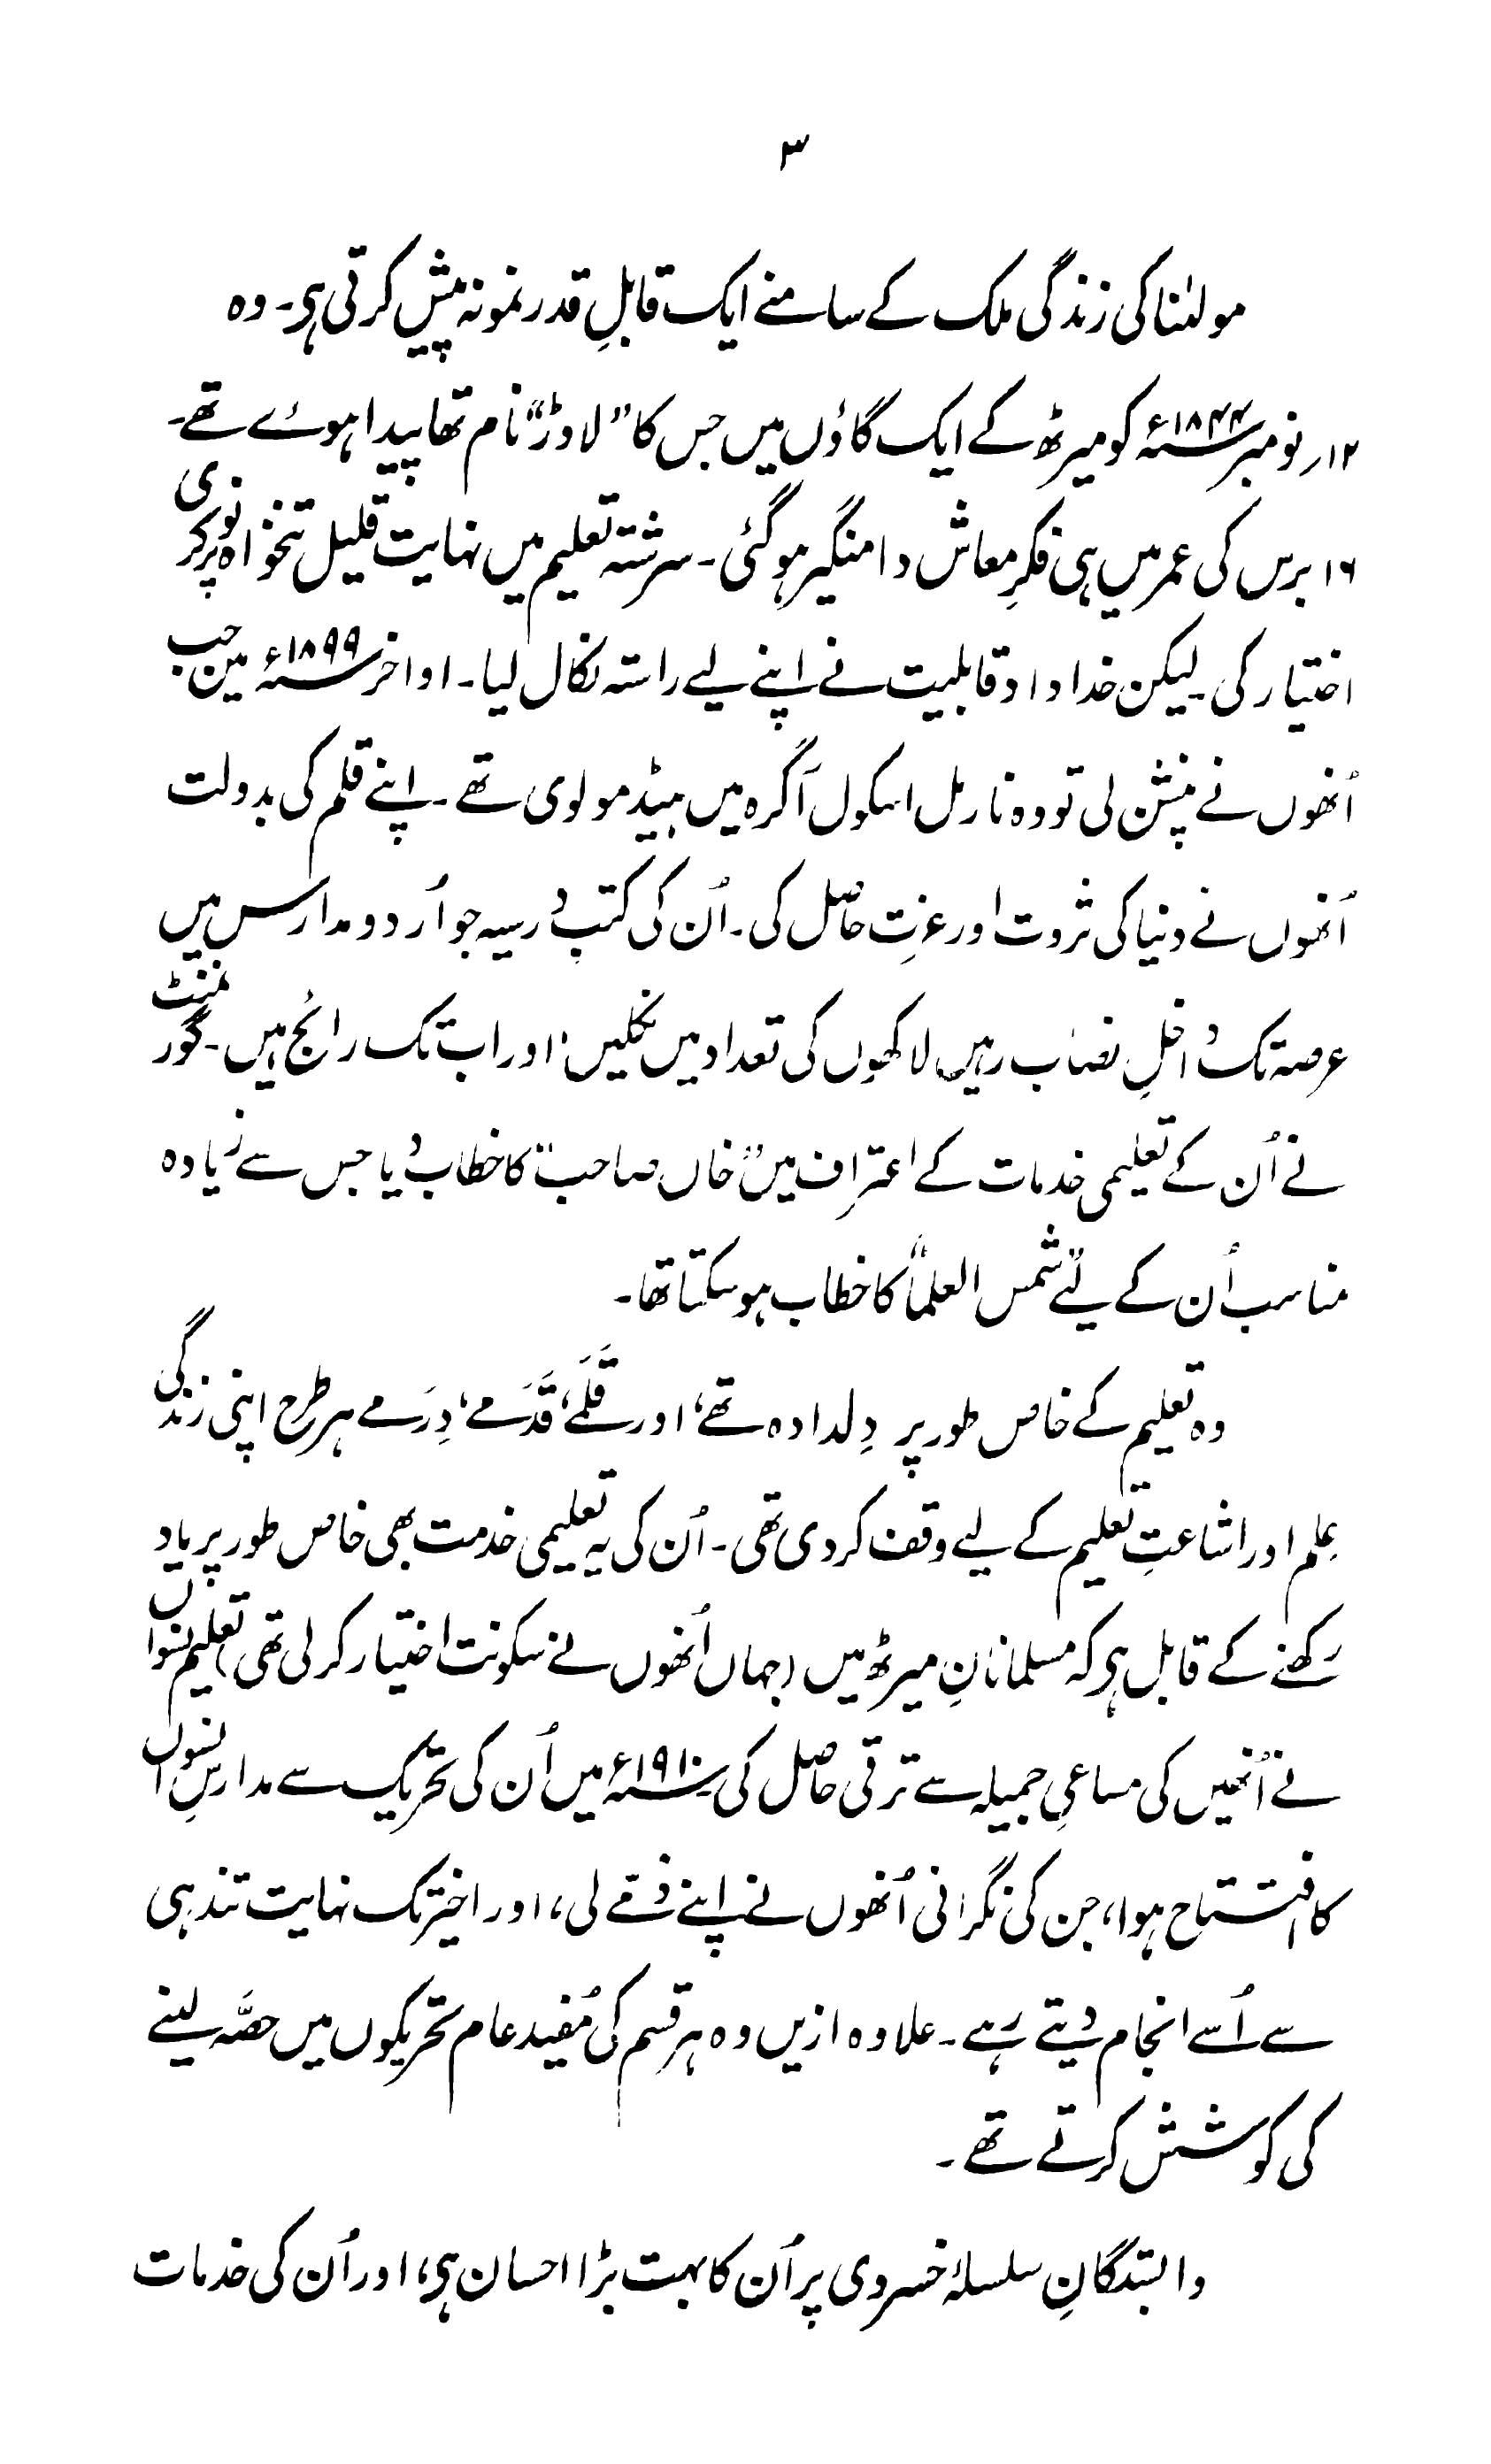 ۳
مولٰنا کی زندگی ملک کے سامنے ایک قابلِ قدر نمونہ پیش کرتی ہی۔ وہ
۱۲؍ نومبر ۱۸۴۴ء کو میرٹھ کے ایک گاؤں میں جس کا "لاوڑ" نام تھا پیدا ہوئے تھے۔
۱۶ برس کی عمر میں ہی فکرِ معاش دامنگیر ہوگئی۔ سرشتہ تعلیم میں نہایت قلیل تنخواہ پر نوکری
اختیار کی۔ لیکن خداداد قابلیت نے اپنے لیے راستہ نکال لیا۔ اواخر ۱۸۹۹ء میں جب
اُنھوں نے پنشن لی تو وہ نارمل اسکول آگرہ میں ہیڈ مولوی تھے۔ اپنے قلم کی بدولت
اُنھوں نے دنیا کی ثروت اور عزت حاصل کی۔ اُن کی کتب درسیہ جو اُردو مدارس میں
عرصہ تک داخلِ نصاب رہیں لاکھوں کی تعداد میں نکلیں، اور اب تک رائج ہیں۔ گورنمنٹ
نے اُن کے تعلیمی خدمات کے اعتراف میں "خاں صاحب" کا خطاب دیا جس سے زیادہ
مناسب اُن کے لیے "شمس العلما" کا خطاب ہوسکتا تھا۔
وہ تعلیم کے خاص طور پر دِلدادہ تھے، اور قَلَمے، قَدَمے، دِرَمے ہر طرح اپنی زندگی
عِلم اور اشاعتِ تعلیم کے لیے وقف کردی تھی۔ اُن کی یہ تعلیمی خدمت بھی خاص طور پر یاد
رکھنے کے قابل ہی کہ مسلمانانِ میرٹھ میں (جہاں اُنھوں نے سکونت اختیار کرلی تھی) تعلیم نسواں
نے اُنھیں کی مساعیِ جمیلہ سے ترقی حاصل کی۔ ۱۹۱۰ء میں اُن کی تحریک سے مدارسِ نسواں
کا افتتاح ہوا، جن کی نگرانی اُنھوں نے اپنے ذمے لی، اور اخیر تک نہایت تندہی
سے اُسے انجام دیتے رہے۔ علاوہ ازیں وہ ہر قسم کی مُفید عام تحریکوں میں حصّہ لینے
کی کوشش کرتے تھے۔
وابستگانِ سلسلۂ خسروی پر اُن کا بہت بڑا احسان ہی، اور اُن کی خدمات